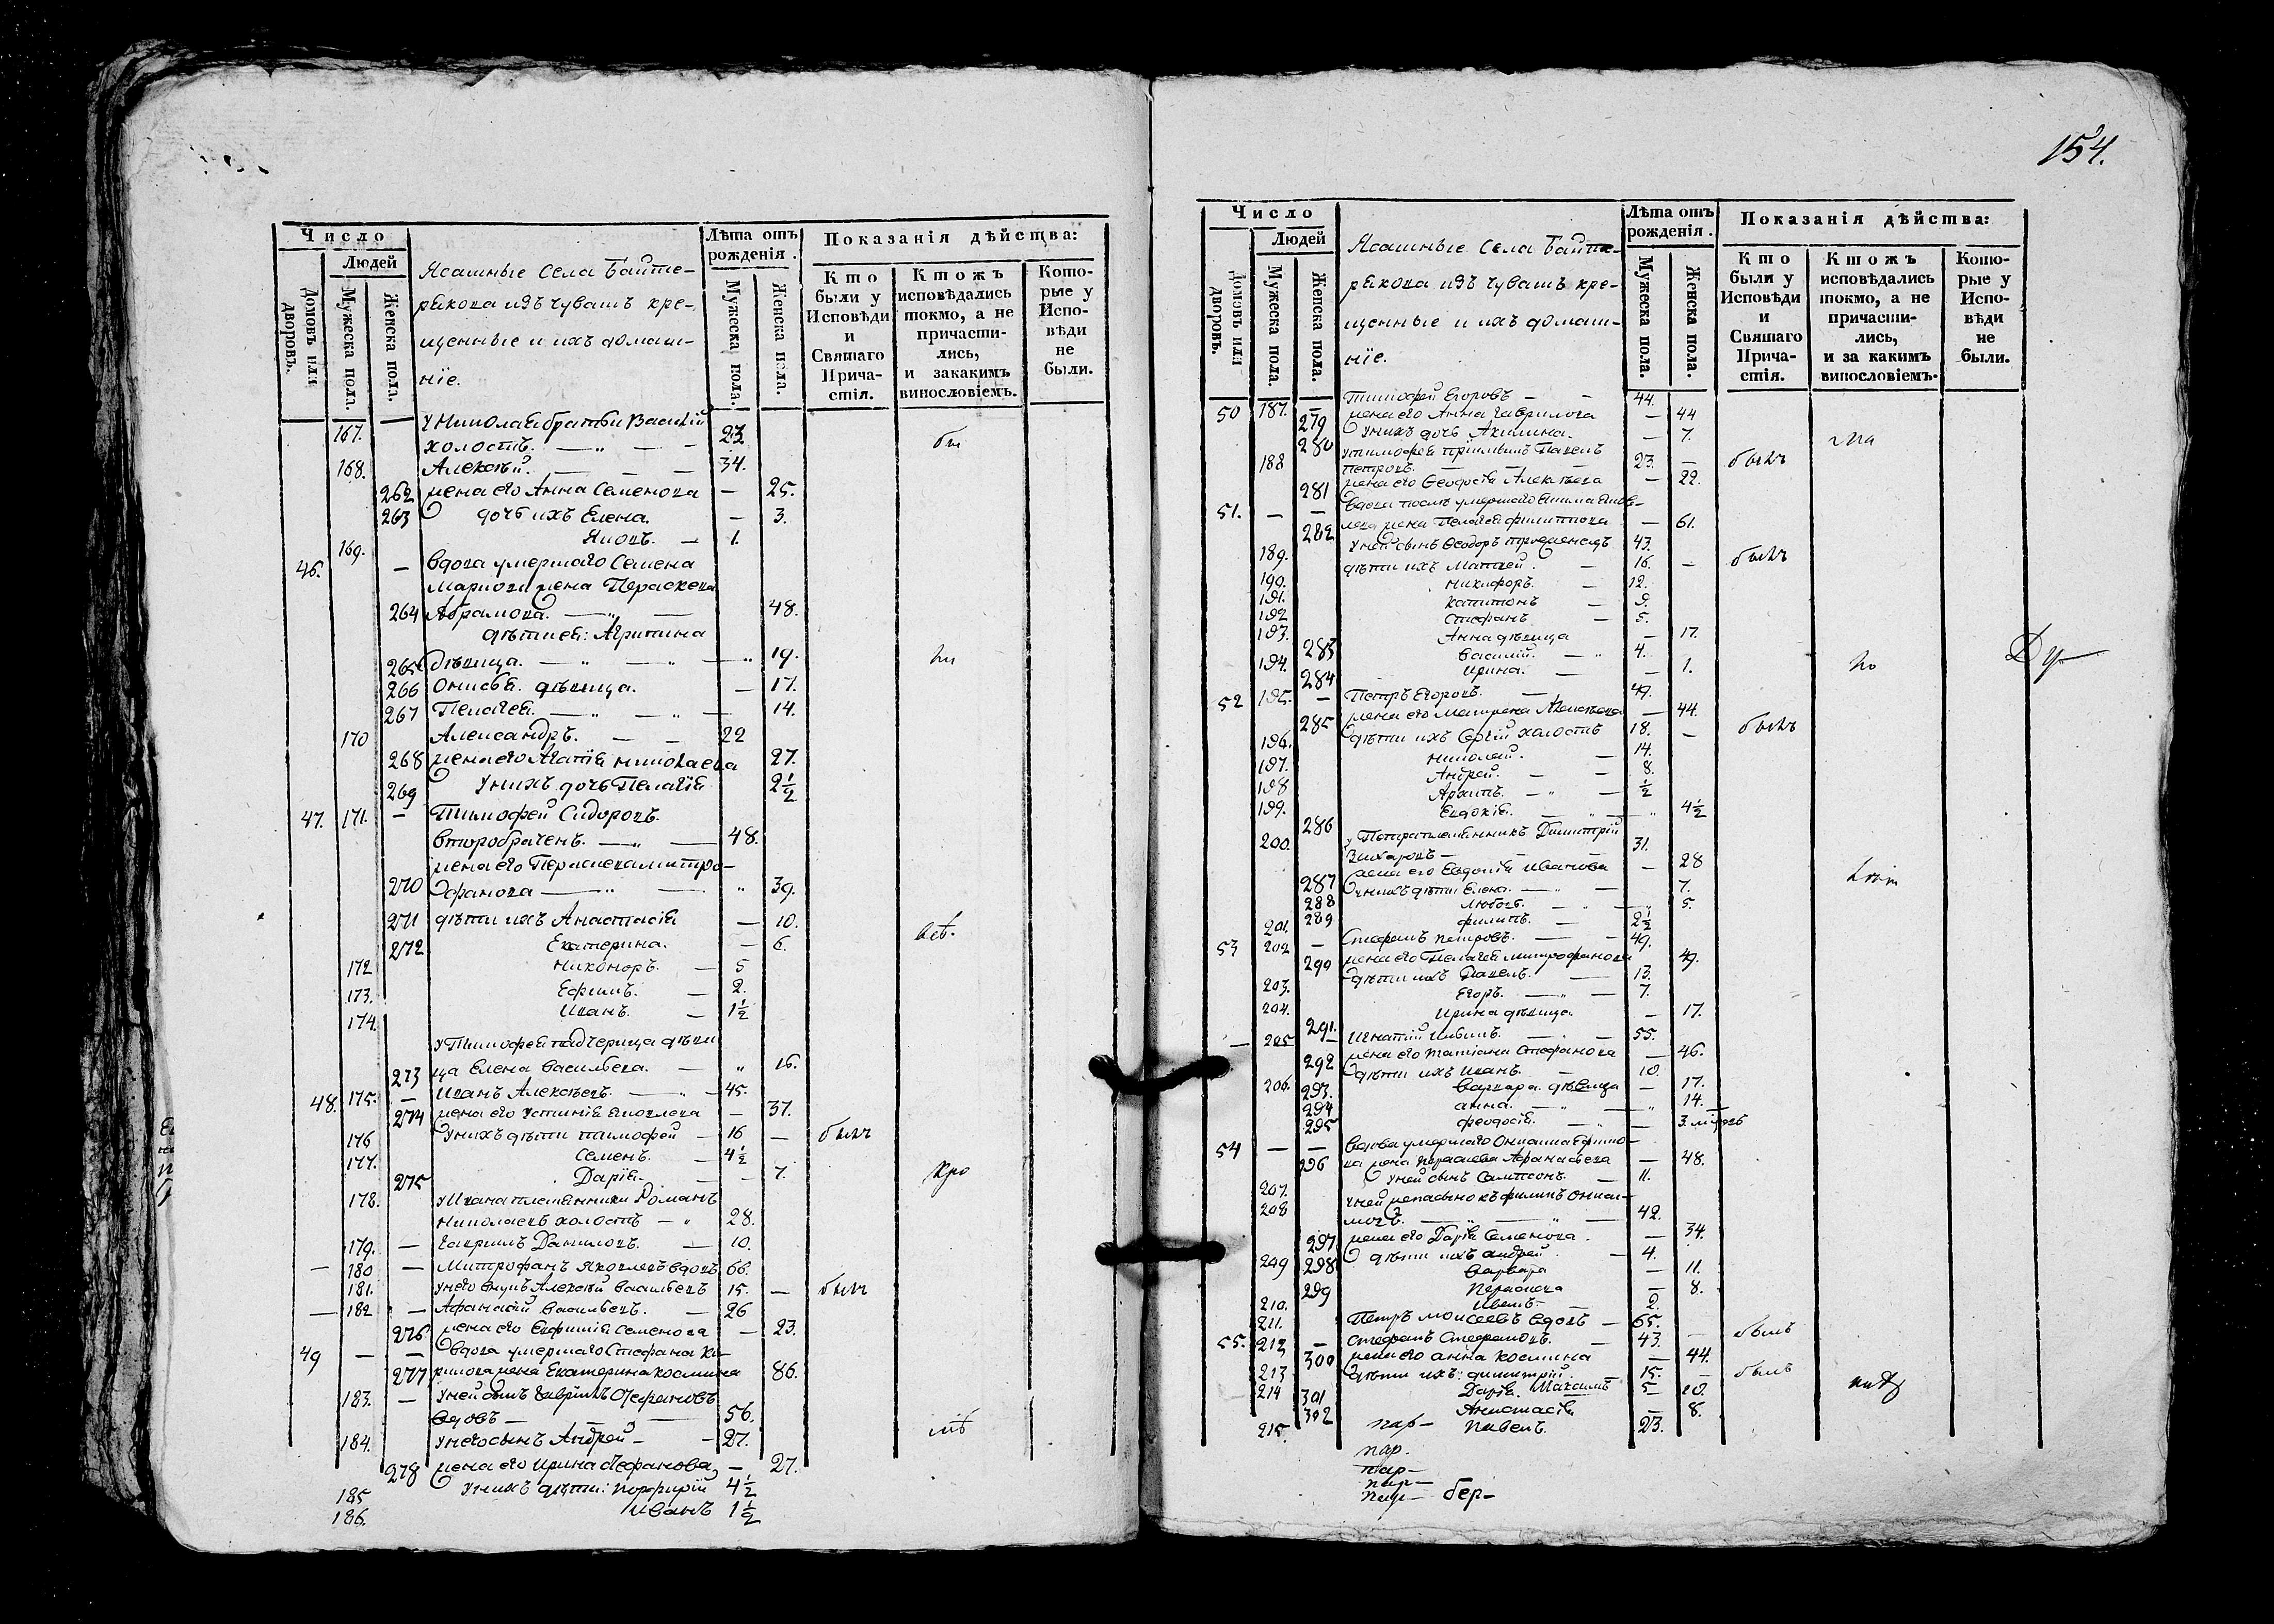 Число
Людей
Домовъ или дворовъ.
Мужеска пола.
Женска пола.
Ясашные Села Байте-
рякова изъ чувашъ кре-
щенные и ихъ домаш-
нїе.
Лѣта отъ рожденія.
Мужеска пола.
Женска пола.
Показанія дѣйства:
Кто были у Исповѣди и Святаго Прича-стія.
Ктожъ исповѣдались токмо, а не причасти-лись, и закакимъ винословіемъ.
Кото-рые у Испо-вѣди не были.
167. У Николая братья Василй
холостъ. 23
168. Алексѣй. 34.
262 жена его Анна Семенова — 25.
263 дочь ихъ Елена. — 3.
169. Яковъ. — 1.
46. — вдова умершаго Семена
Маркова жена Параскева
264 Абрамова. 48.
дѣти ея: Агрипина
265 дѣвица. 19.
266 Онисья дѣвица. — 17.
267 Пелагея. 14.
170 Александръ. 22
268 жена его Агатія Николаева 27.
269 У нихъ дочь Пелагія 2½
47. 171. — Тимофей Сидоровъ.
второбраченъ. 48.
жена его Параскева митро-
270 офанова 39.
271 дѣти ихъ Анастасія — 10.
272 Екатерина. — 6.
172 Никоноръ. — 5
173. Ефимъ. — 2.
174. Иванъ. — 1½
У Тимофея падчерица дѣви
273 ца Елена Васильева. 16.
48. 175. — Иванъ Алексѣевъ. 45.
274 жена его Устинія Яковлева — 37.
176 У нихъ дѣти Тимофей — 16 — былъ
177. Семенъ. — 4½
275 Дарія. 7.
178. У Ивана племянники Романъ
Николаевъ холостъ 28.
179. — Гаврилъ Даниловъ. 10.
— 180 — Митрофанъ Яковлевъ вдовъ 66.
181. У него внукъ Алексѣй Васильевъ 15. — былъ
— 182 — Афанасій Васильевъ. 26
276 жена его Евфимія Семенова — 23.
49 — — вдова умершаго Стефана Ки-
277 рилова жена Екатерина Космина 86.
183. — У ней сынъ Гаврилъ Стефановъ
вдовъ 56.
184. У него сынъ Андрей — 27.
278 жена его Ирина Стефанова — 27.
185 У нихъ дѣти: Порфирій 4½
186. Иванъ 1½
154.
Число
Людей
Домовъ или дворовъ.
Мужеска пола.
Женска пола.
Ясашные Села Байте-
рякова изъ чувашъ кре-
щенные и ихъ домаш-
нїе.
Лѣта отъ рожденія.
Мужеска пола.
Женска пола.
Показанія дѣйства:
Кто были у Исповѣди и Святаго Прича-стія.
Ктожъ исповѣдались токмо, а не причасти-лись, и за какимъ винословіемъ.
Кото-рые у Испо-вѣди не были.
50 187. — Тимофей Егоровъ 44.
279 жена его Анна Гаврилова — 44
280 У нихъ дочь Акилина. — 7.
188 У Тимофея Павелъ
Петровъ. 23. — былъ
281 жена его Феодосія Алексѣева — 22.
51. — — вдова послѣ умершаго
282 жена Пелагея Филиппова — 61.
189. У ней сынъ Феодоръ 43.
190. дѣти ихъ Матвей. 16. — былъ
191. Никифоръ. 12.
192 Капитонъ 9.
193. Стефанъ 5.
283 Анна дѣвица — 17.
194. Василій. 4.
284 Ирина. — 1.
52 195. — Петръ Егоровъ. 49.
285 жена его Матрена Алексѣева — 44.
196. дѣти ихъ Сергій холостъ 18. — былъ
197. Николай. 14.
198 Андрей. 8.
199. Архипъ. ½
286 Евдокія. 4½
200. У Петра племянникъ Димитрій
Захаровъ 31.
287 жена его Евдокія Иванова — 28
288 У нихъ дѣти: Елена. 7.
289 Любовь. 5.
201. Филипъ. 2½
53 202 — Стефанъ Петровъ. 49.
290 жена его Пелагея Митрофанова 49.
203. дѣти ихъ Павелъ. 13.
204. Егоръ. 7.
291. Ирина дѣвица. — 17.
— 205 — Игнатій 55.
292 жена его Татіана Стефанова — 46.
206. дѣти ихъ Иванъ. 10.
293. Варвара дѣвица — 17.
294 Анна. 14.
295 Феодосія. 3.
54 — — вдова умершаго
296 жена Параскева Афанасьева — 48.
207. У ней сынъ Сампсонъ. 11.
208 У ней пасынокъ Филипъ 42.
297 жена его Дарія Семенова. — 34.
209 дѣти ихъ Андрей. 4.
298 Варвара — 11.
299 Параскева — 8.
210. 2.
211. Петръ Моисеевъ вдовъ — 65. — былъ
55. 212 — Стефанъ Стефановъ. 43.
300 жена его Анна Космина — 44.
213 дѣти ихъ: Димитрій. 15. — былъ
214 301 Дарія. Максимъ 5 10.
302 Анастасія — 8.
215. Павелъ. 23.
пар.
пар—